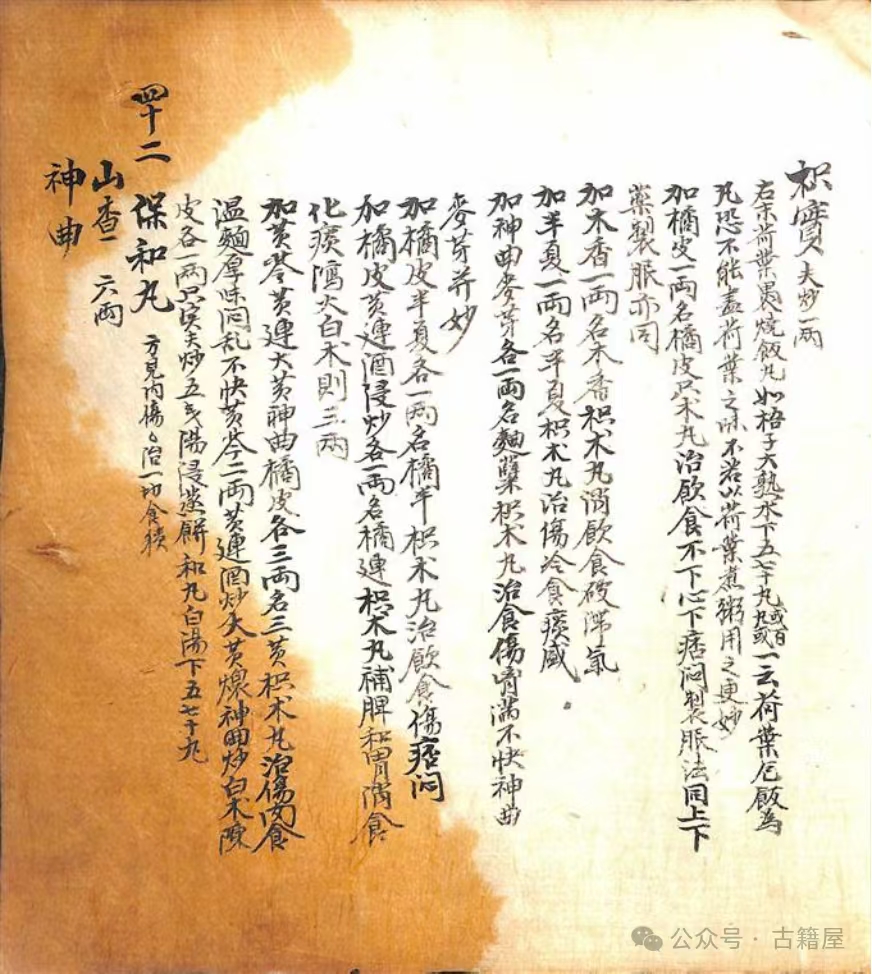 枳實 夫炒一兩
右末荷葉裹燒飯丸如梧子大熟水下五七十丸或曰丸或一云荷葉包飯為
丸恐不能盡荷葉之味不若以荷葉煮粥用之更妙
加橘皮一兩名橘皮只朮丸治飲食不下心下痞悶製服法同上下
藥製服亦同
加木香一兩名木香枳朮丸消飲食破滯氣
加半夏一兩名半夏枳朮丸治傷冷食痰盛
加神曲麥芽各一兩名麵櫱枳朮丸治食傷胃滿不快神曲
麥芽并炒
加橘皮半夏各一兩名橘半枳朮丸治飲食傷痞悶
加橘皮黃連酒浸炒各一兩名橘連枳朮丸補脾和胃消食
化痰瀉火白朮則三兩
加黃芩黃連大黃神曲橘皮各三兩名三黃枳朮丸治傷肉食
溫麵厚味悶乱不快黃芩二兩黃連酒炒大黃煨神曲炒白朮陳
皮各一兩只实夫炒五戋湯浸蒸餅和丸白湯下五七十丸
四十二 保和丸 方見內傷〻治一切食積
山查 六兩
神曲
公众号·古籍屋